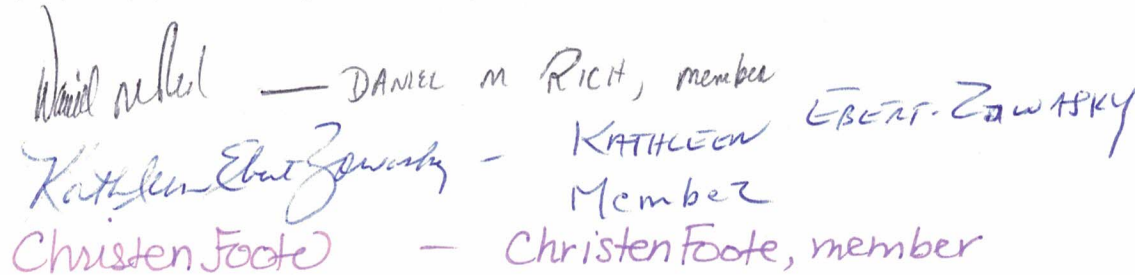 Daniel M Rich — DANIEL M RICH, member
Kathleen Ebert Zawasky - KATHLEEN EBERT-ZAWASKY
Member
Christen Foote — Christen Foote, member